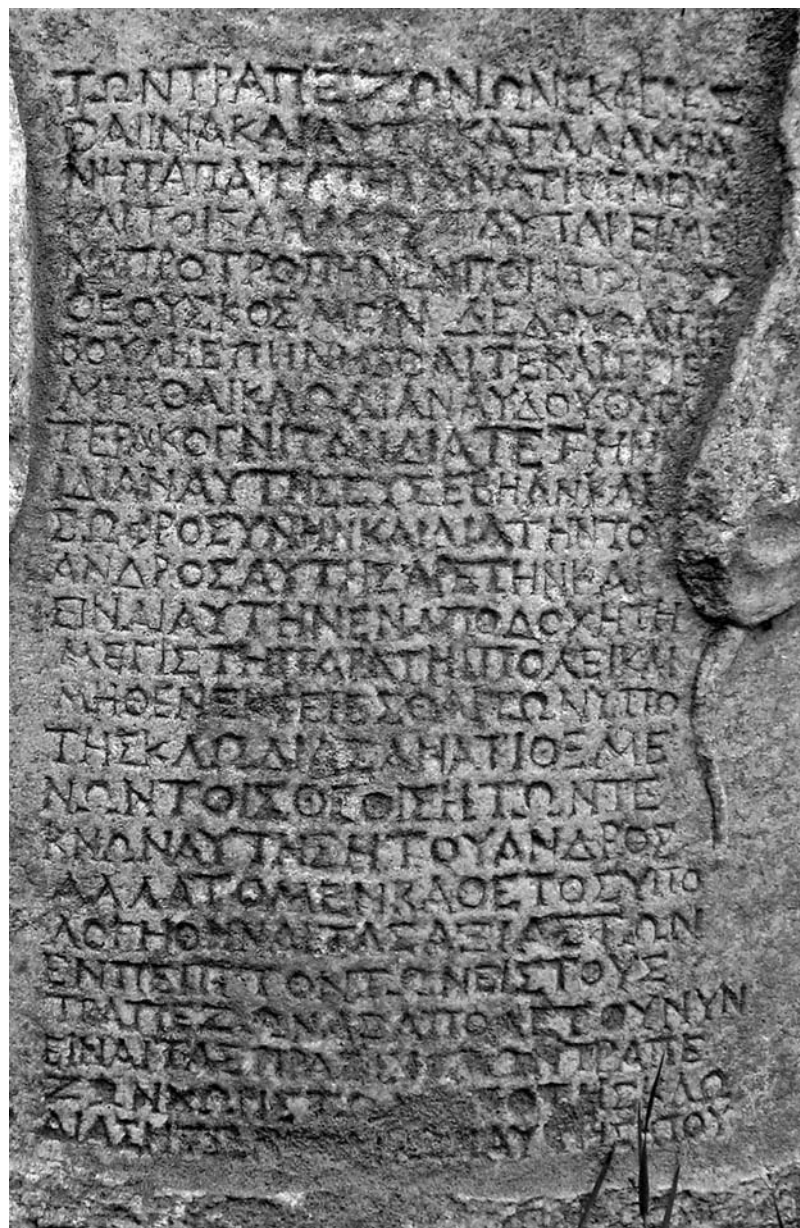 ΤΩΝΤΡΑΠΕΖΩΝΩΝ
ΘΑΙΙΝΑΚΑΙΑΥΤ ΚΑΤΑΛΑΜΒΑ
ΝΗΤΑΠΑΡ
ΚΑΙΤΟΙΣ ΑΥΤΑΡ
ΠΡΟΤΡΟΠΗΝ
ΘΕΟΥΣΚΟΣΜΟΝ ΔΕΔΟΧΘΑΙΤΕ
ΒΟΥΛΗΕΠΗΝΗΣΘΑΙΤΕΚΑΙΤΕΤΕΙ
ΜΗΣΘΑΙΚΛΩΔΙΑΝΑΥΔΟΥΘΥΓΑ
ΤΕΡΑΚΟΓΝΙΤΑΝΔΙΑΤΕΤΗΝ
ΙΔΙΑΝΑΥΤΗΣΕΥΣΕΒΗΑΝΚΑΙ
ΣΩΦΡΟΣΥΝΗΝΚΑΙΔΙΑΤΗΝΤΟΥ
ΑΝΔΡΟΣΑΥΤΗΣΑΡΕΤΗΝΚΑΙ
ΕΙΝΑΙΑΥΤΗΝΕΝΑΠΟΔΟΧΗΤΗ
ΜΕΓΙΣΤΗΠΑΡΑΤΗΠΟΛΕΙΚΑΙ
ΜΗΘΕΝΕΙ ΕΣΘΑΙΤΩΝΥΠΟ
ΤΗΣΚΛΩΔΙΑΣΑΝΑΤΙΘΕΜΕ
ΝΩΝΤΟΙΣΘΕΟΙΣΗΤΩΝΤΕ
ΚΝΩΝΑΥΤΗΣΗΤΟΥΑΝΔΡΟΣ
ΑΛΛΑΤΟΜΕΝΚΑΘΕΤΟΣΥΠΟ
ΛΟΓΗΘΗΝΑΙΤΑΣΑΞΙΑΣΤΩΝ
ΕΝΠΕΙΠΤΟΝΤΩΝΕΙΣΤΟΥΣ
ΤΡΑΠΕΖΩΝΑΣΑΠΟΔΕΤΟΥΝΥΝ
ΕΙΝΑΙΤΑΣΠΡΑΣΙΣΤΩΝΤΡΑΠΕ
ΖΩΝΧΩΡΙΣΤΩΝ ΤΗΣΚΛΩ
ΔΙΑΣΗΤΩΝ ΑΥΤΗΣΗΤΟΥ